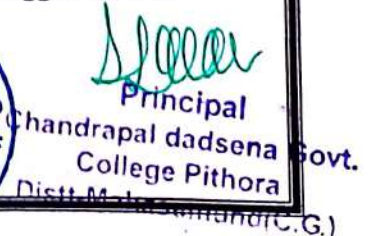 Principal
Chandrapal dadsena Govt.
College Pithora
Distt-Mahasamund(C.G.)